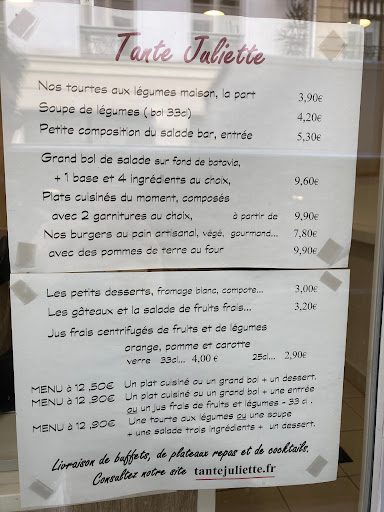 Tante Juliette
Nos tourtes aux légumes maison, la part 3,90€
Soupe de légumes ( bol 33cl) 4,20€
Petite composition du salade bar, entrée 5,30€
Grand bol de salade sur fond de batavia,
+ 1 base et 4 ingrédients au choix, 9,60€
Plats cuisinés du moment, composés
avec 2 garnitures au choix, à partir de 9,90€
Nos burgers au pain artisanal, végé, gourmand... 7,80€
avec des pommes de terre au four 9,90€
Les petits desserts, fromage blanc, compote... 3,00€
Les gâteaux et la salade de fruits frais... 3,20€
Jus frais centrifugés de fruits et de légumes
orange, pomme et carotte
verre 33cl... 4,00 € 25cl... 2,90€
MENU à 12 ,50€ Un plat cuisiné ou un grand bol + un dessert.
MENU à 12 ,90€ Un plat cuisiné ou un grand bol + une entrée
ou un jus frais de fruits et légumes - 33 cl .
MENU à 12 ,90€ Une tourte aux légumes ou une soupe
+ une salade trois ingrédients + un dessert.
Livraison de buffets, de plateaux repas et de cocktails.
Consultez notre site tantejuliette.fr